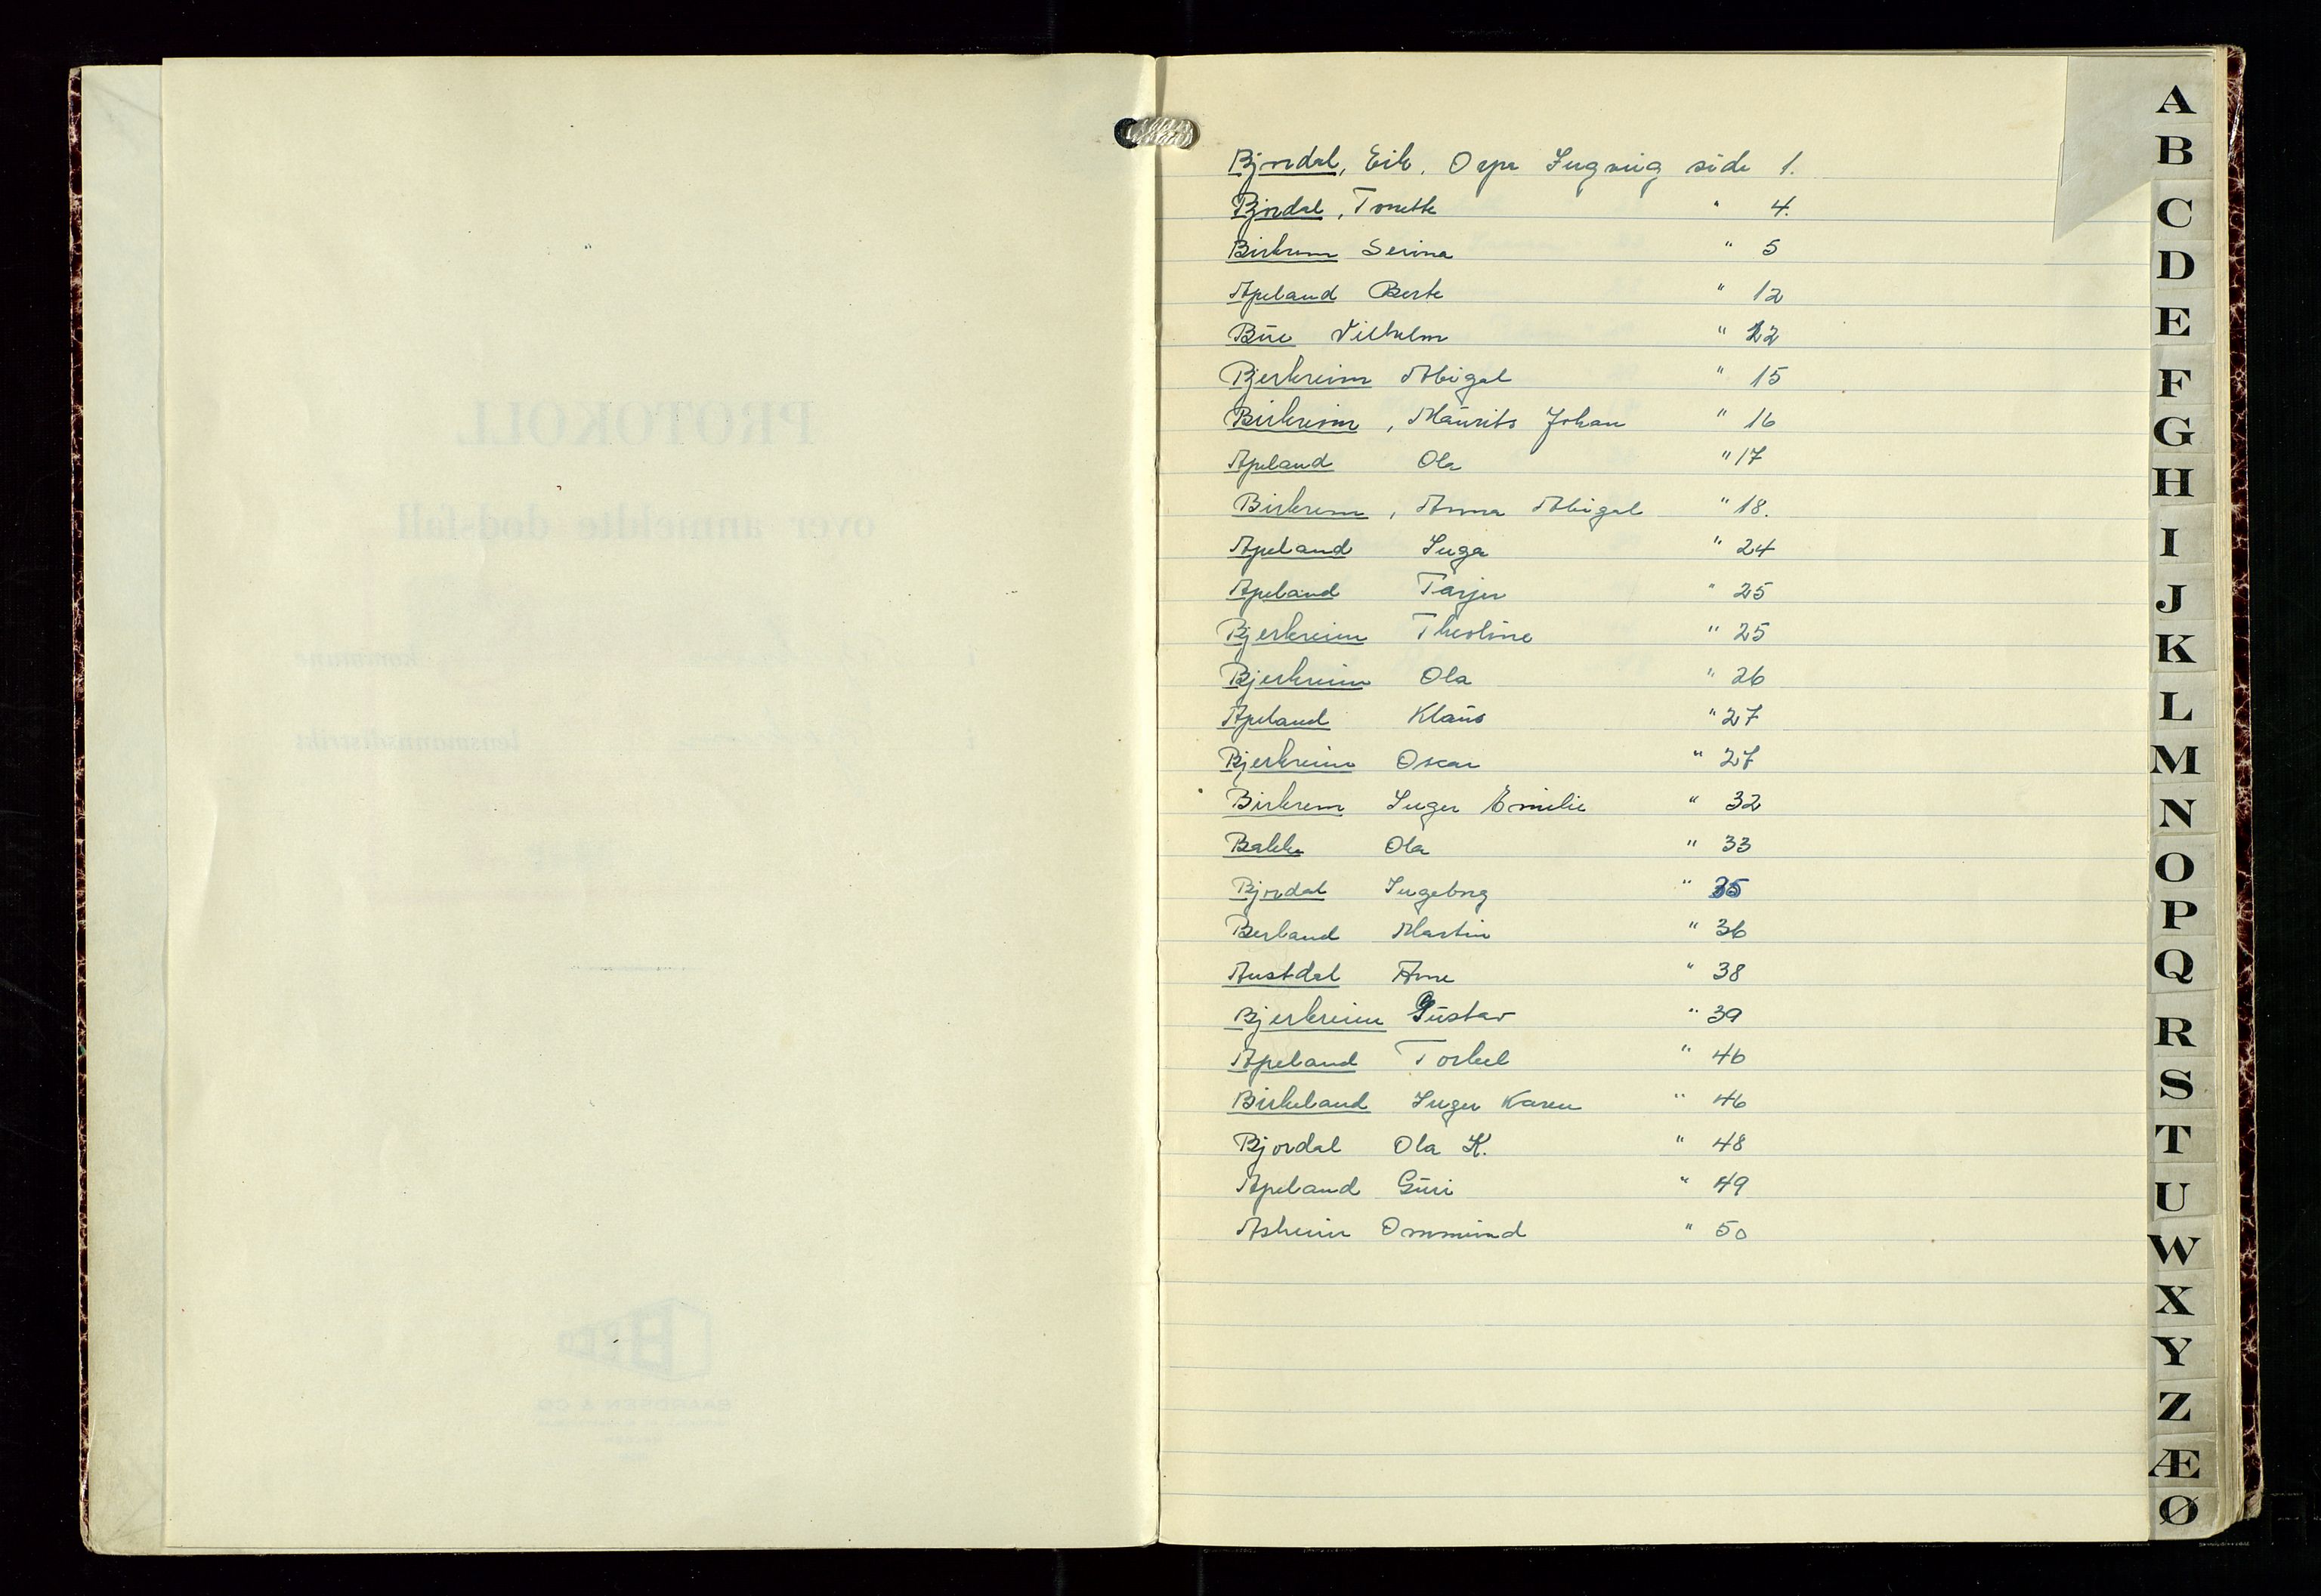 PROTOKOLL
over anmeldte død-fall
i kommune
i lensmannsdistrikt
BAARDSEN & CO
Bjordal, Eik. Ingvig side 1.
Bjordal, Tonette " 4.
Birkrem Serina " 5
Apeland Berte " 12
Bue Vilhelm " 22
Bjerkreim Abigal " 15
Birkreim, Maurits Johan " 16
Apeland Ola " 17
Birkrem, Anna Abigal " 18.
Apeland Inga " 24
Apeland Tarjer " 25
Bjerkreim Theoline " 25
Bjerkreim Ola " 26
Apeland Klaus " 27
Bjerkreim Oscar " 27
Birkrem Inger Emilie " 32
Bakke Ola " 33
Bjordal Ingeborg " 35
Berland Martin " 36
Austdal Arne " 38
Bjerkreim Gustav " 39
Apeland Torkel " 46
Birkeland Inger Karen " 46
Bjordal Ola K. " 48
Apeland Guri " 49
Asheim Ommund " 50
A
B
C
D
E
F
G
H
I
J
K
L
M
N
O
P
Q
R
S
T
U
W
X
Y
Z
Æ
Ø